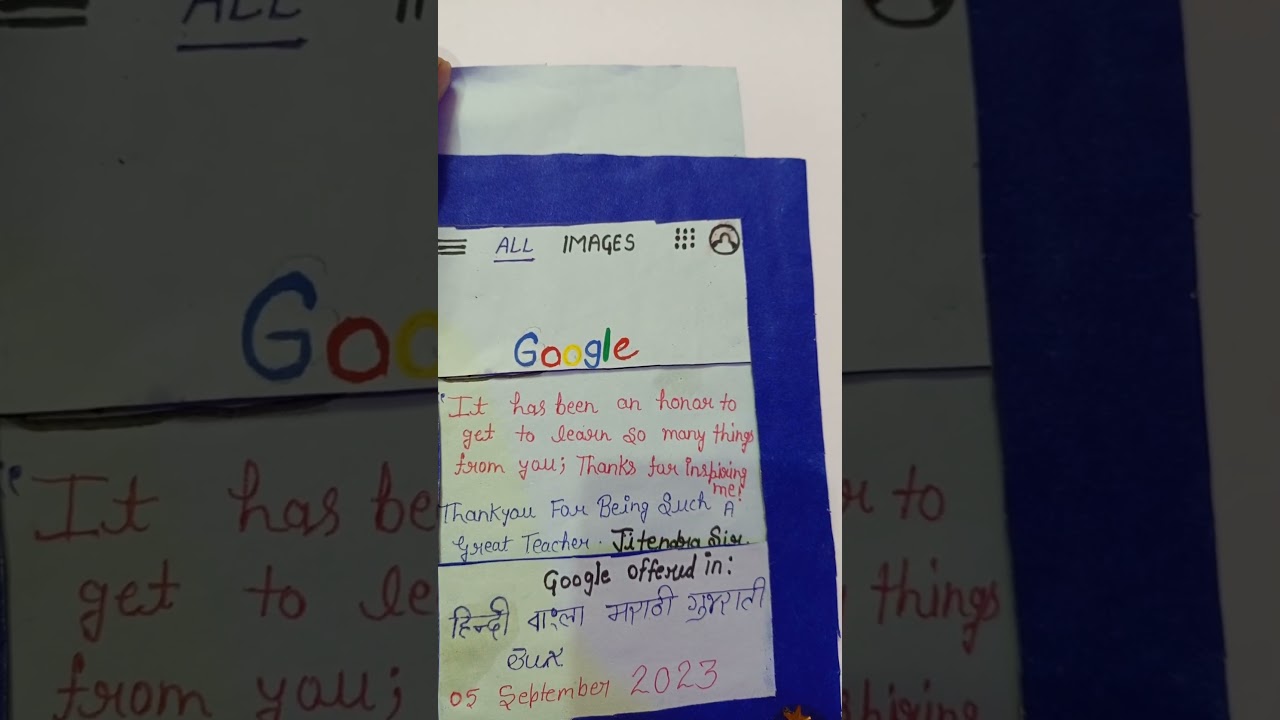 ALL IMAGES
Google
It has been an honor to
get to learn so many things
from you; Thanks for inspiring
me!
Thankyou For Being Such A
great Teacher. Jitendra Sir.
Google offered in:
हिन्दी বাংলা मराठी ગુજરાતી
05 September 2023